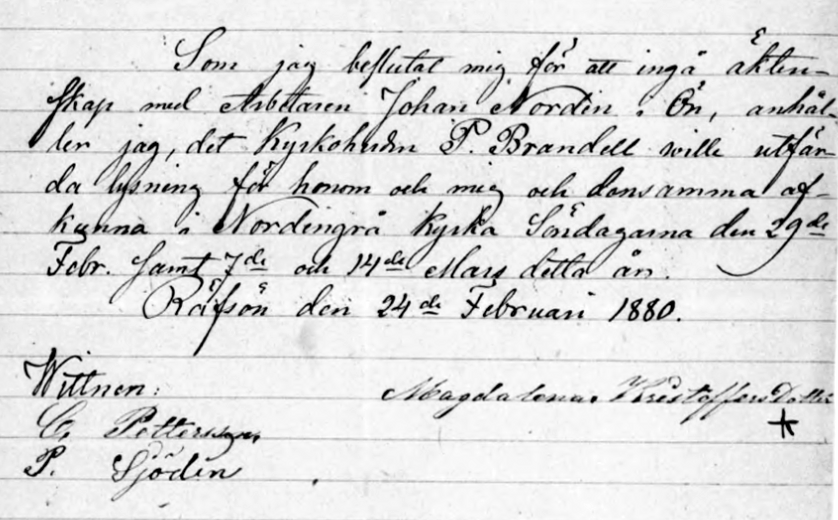 Som jag beslutat mig för att ingå äkten-
skap med Arbetaren Johan Nordin i Ön, anhål-
ler jag, det Kyrkoherdn P. Brandell wille utfär-
da lysning för honom och mig och densamma af-
kunna i Nordingrå Kyrka Söndagarna den 29de
Febr. samt 7de och 14de Mars detta år.
Räfsön den 24de Februari 1880.
Wittnen: Magdalena Kristoffers Dotter
C. Pettersson
P. Sjödin